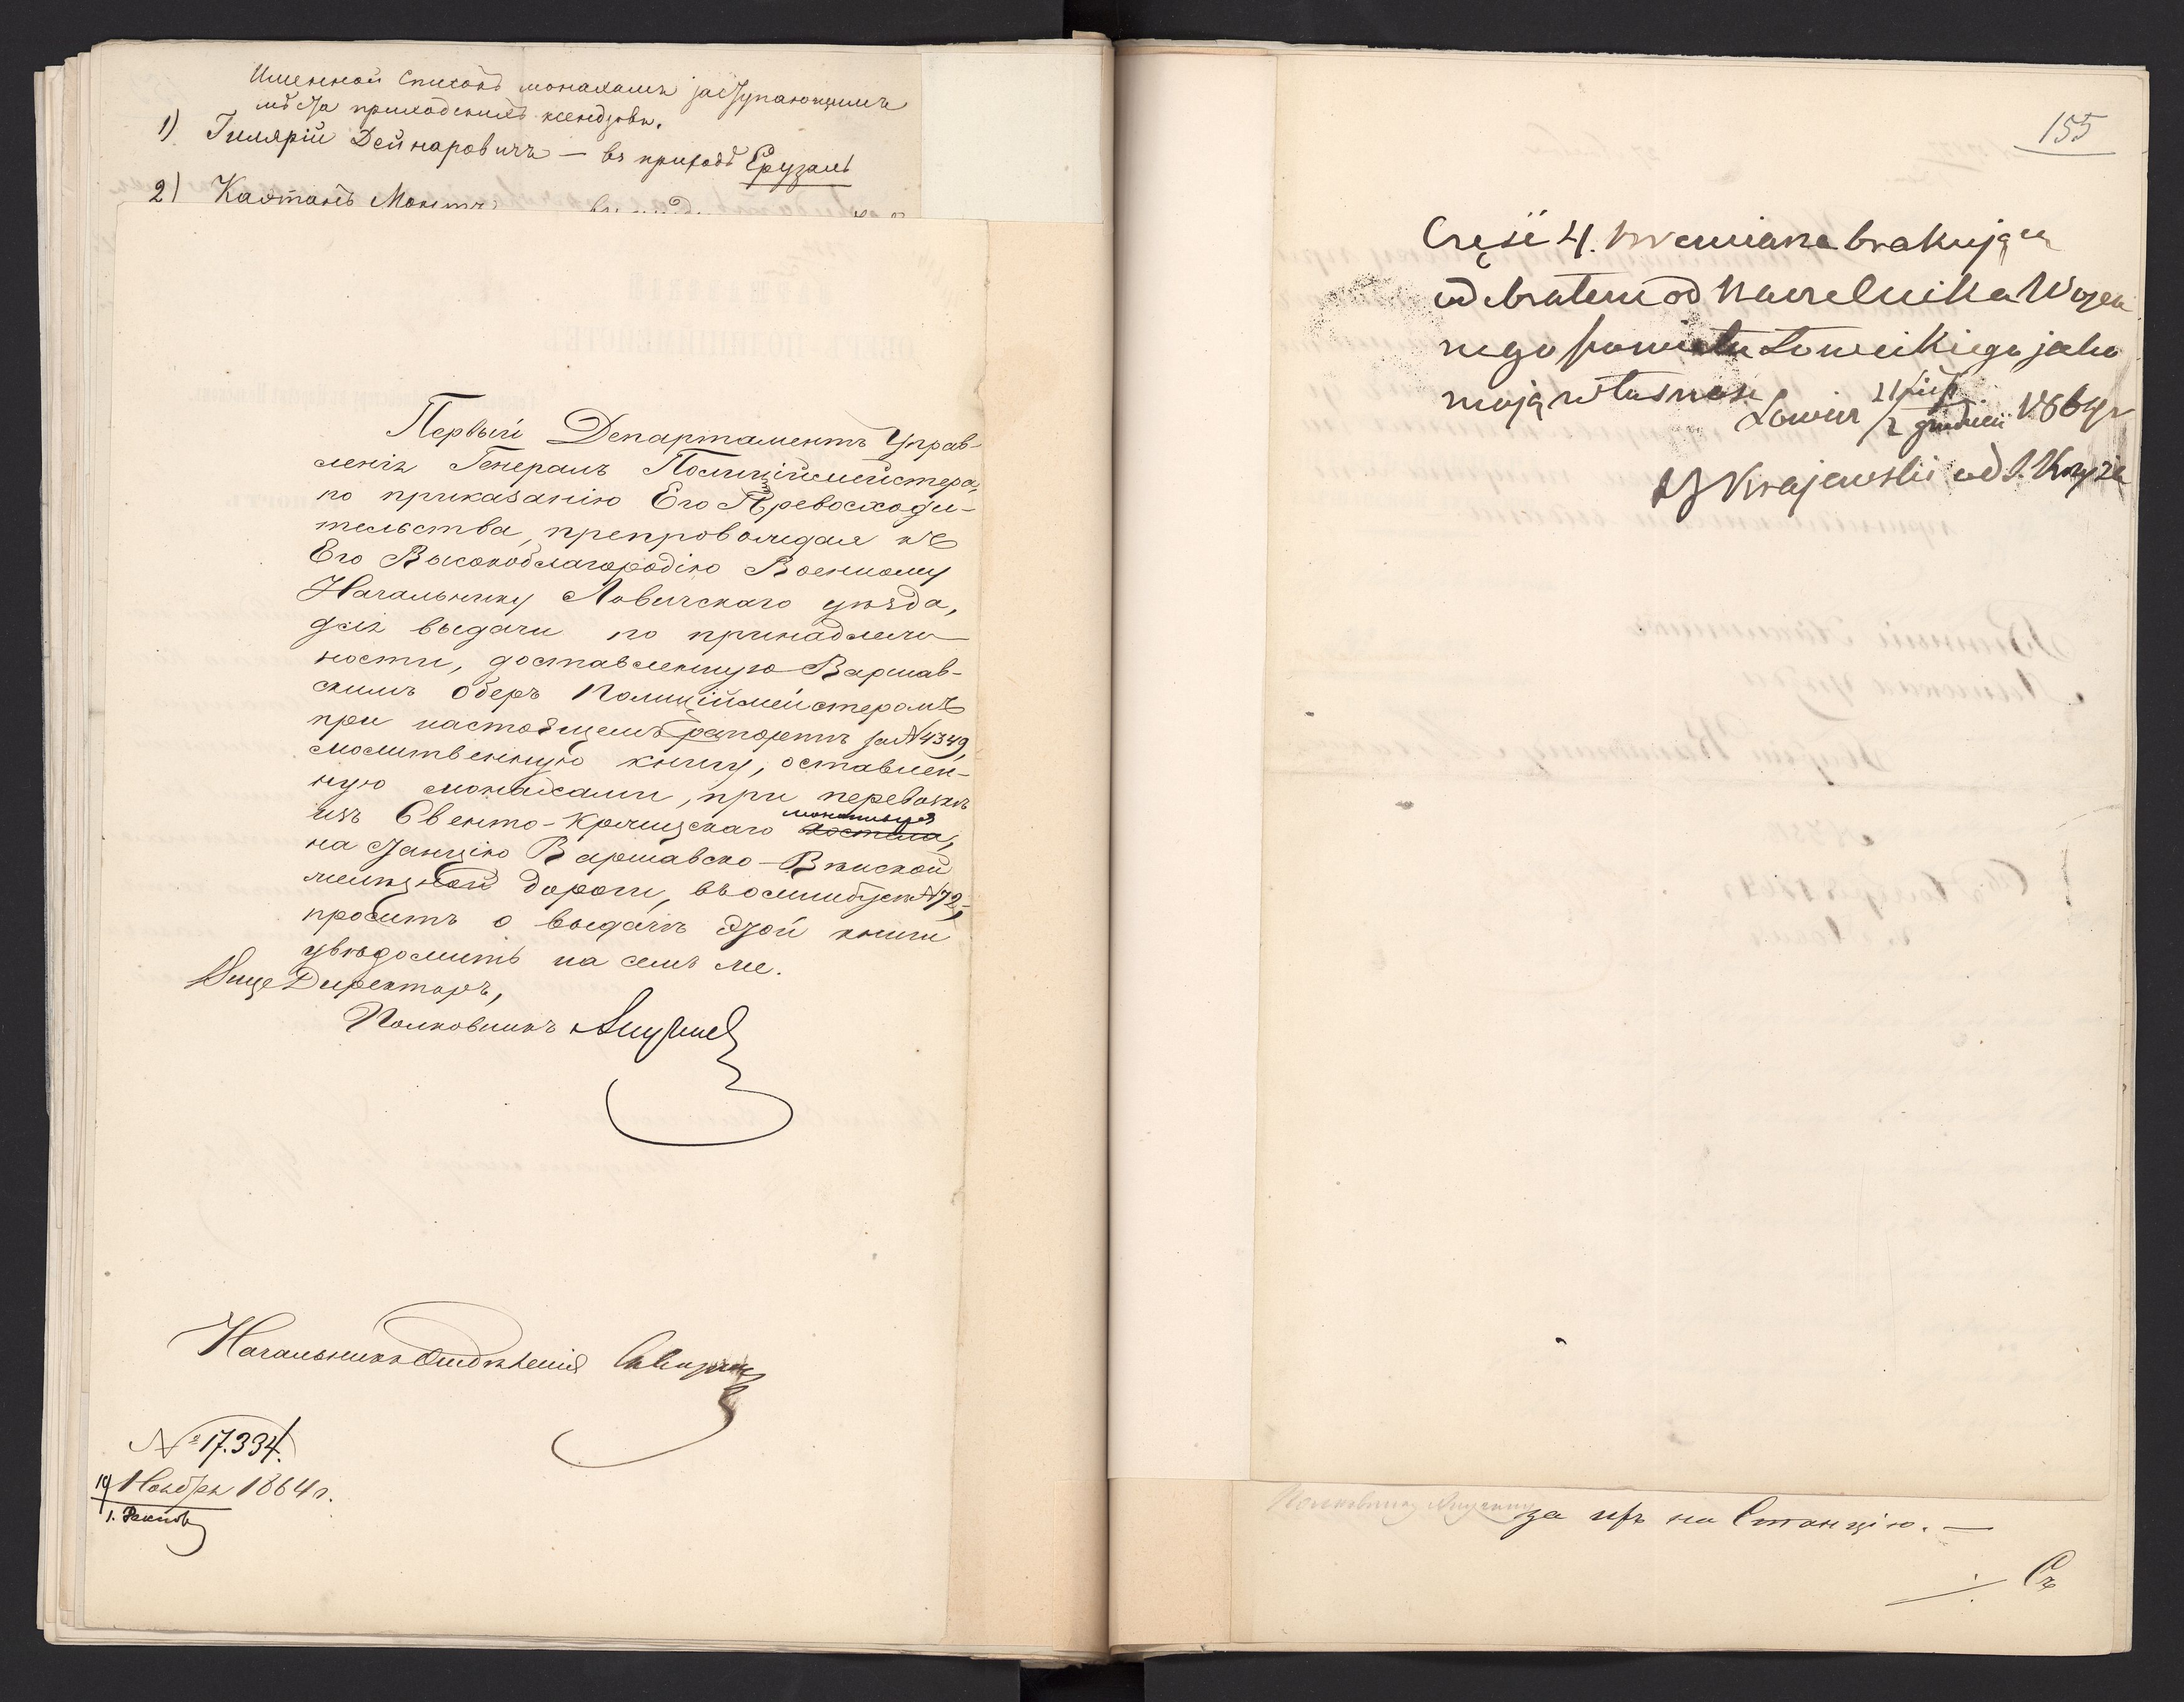 Именной Списокъ монахамъ заступающимъ
мѣста приходскихъ ксендзовъ.
1) Гилярій Дейнаровичъ — въ приходѣ Ерузалъ
2) Каэтанъ
Первый Департаментъ Управ-
ленія Генералъ Полиціймейстера,
по приказанію Его Превосходи-
тельства, препровождая къ
Его Высокоблагородію Военному
Начальнику Ловичскаго уѣзда,
для выдачи по принадлеж-
ности, доставленную Варшав-
скимъ Оберъ Полиціймейстеромъ
при настоящемъ рапортѣ за №4349,
молитвенную книгу, оставлен-
ную монахами, при перевозкѣ
изъ Свенто-Кржижскаго монастыря
на станцію Варшавско-Вѣнской
желѣзной дороги, въ омнибусѣ №72,
проситъ о выдачѣ этой книги
увѣдомить на семъ же.
Вице Директоръ,
Полковникъ
Начальникъ Отдѣленія
№ 17.334.
19 Ноября 1864 г.
1. Декабря
155
Część 4. brakującą
odebrałem od Naczelnika Wojen
nego powiatu Łowickiego jako
moją własność
Łowicz 21 list / 2 grudnia 1864 r
Krajewski od S. Krzyża
за № на Станцію. —